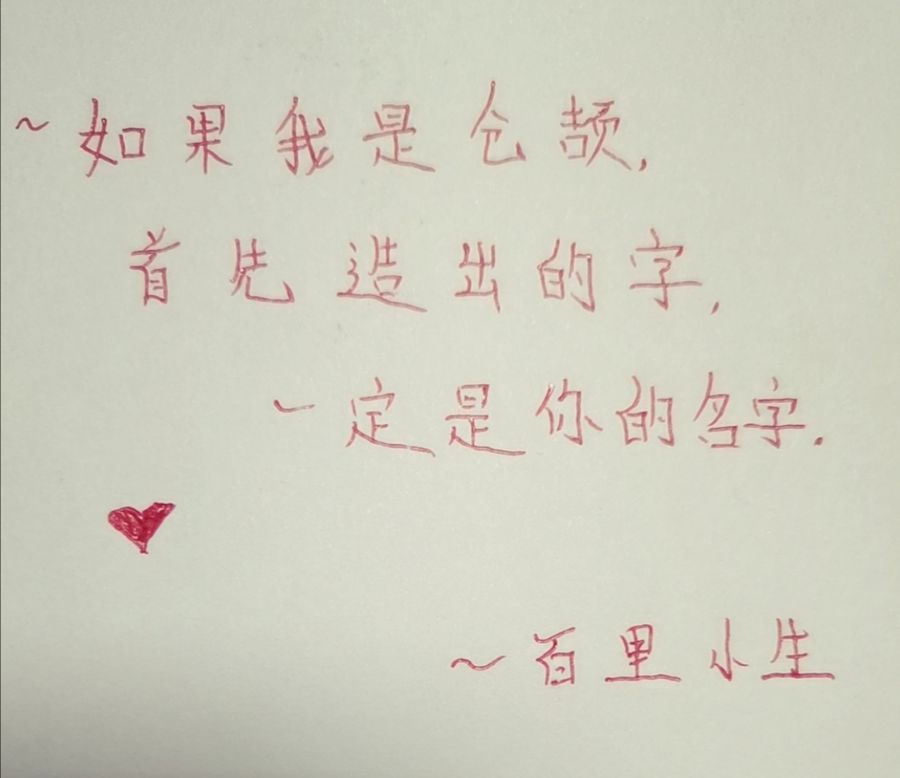 ~如果我是仓颉,
首先造出的字,
一定是你的名字.
~百里小生